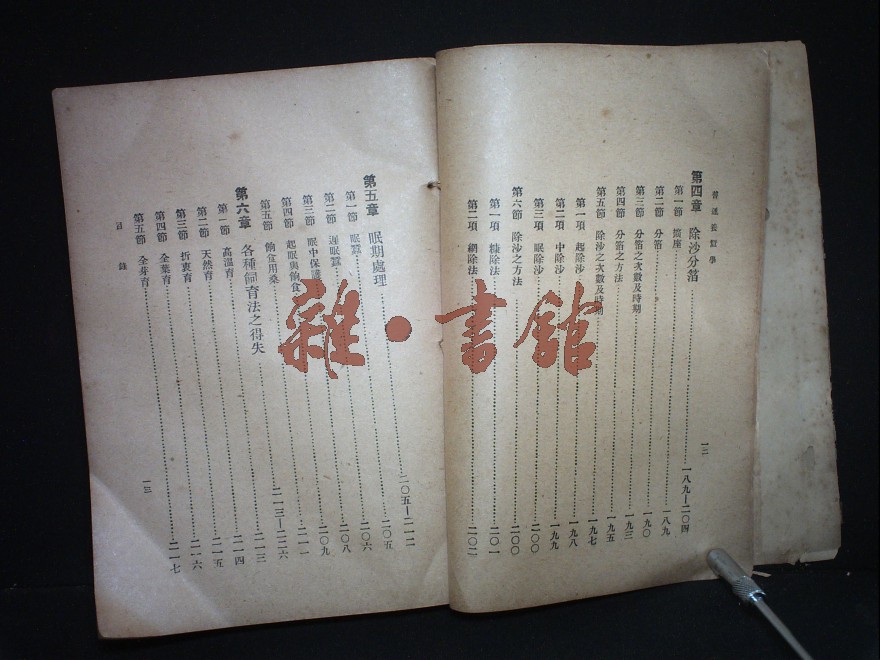 普通養蠶學
一二
第四章 除沙分箔……一八九—二〇四
第一節 擴座……一八九
第二節 分箔……一九〇
第三節 分箔之次數及時期……一九三
第四節 分箔之方法……一九五
第五節 除沙之次數及時期……一九七
第一項 起除沙……一九八
第二項 中除沙……一九九
第三項 眠除沙……二〇〇
第六節 除沙之方法……二〇〇
第一項 糠除法……二〇一
第二項 網除法……二〇二
第五章 眠期處理……二〇五—二一二
第一節 眠蠶……二〇五
第二節 遲眠蠶……二〇六
第三節 眠中保護……二〇八
第四節 起眠與餉食……二〇九
第五節 餉食用桑……二一一
第六章 各種飼育法之得失……二一三—二二六
第一節 高溫育……二一三
第二節 天然育……二一四
第三節 折衷育……二一五
第四節 全葉育……二一六
第五節 全芽育……二一七
目錄
一三
雜·書館